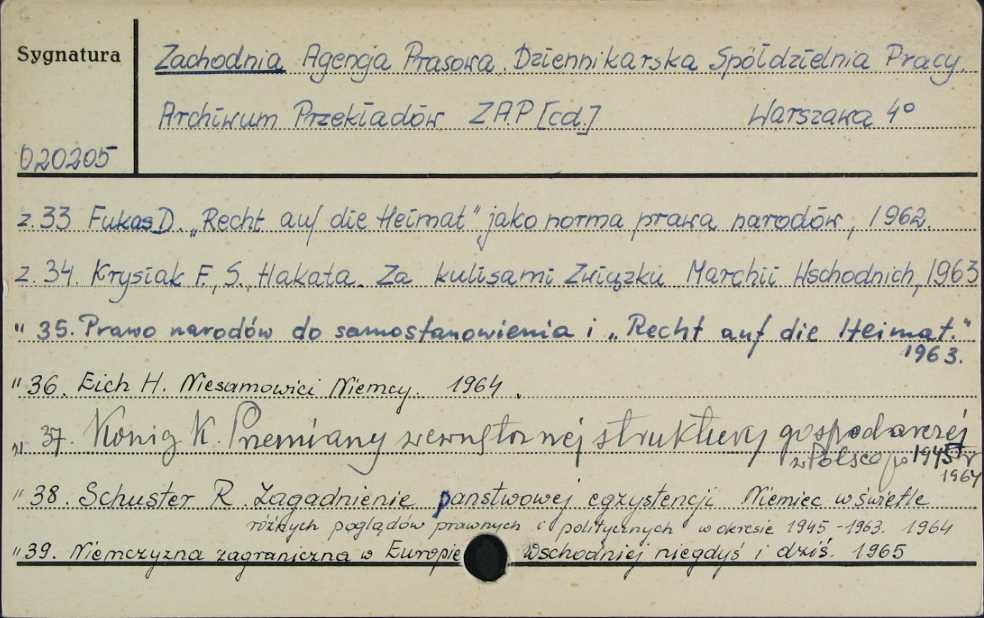 Sygnatura
Zachodnia Agencja Prasowa. Dziennikarska Spółdzielnia Pracy.
Archiwum Przekładów Z.A.P [cd.] Warszawa 4º
020205
z. 33 Fukas D. „Recht auf die Heimat” jako norma prawa narodów, 1962.
z. 34. Krysiak F. S. Hakata. Za kulisami Związku Marchii Wschodnich, 1963
" 35. Prawo narodów do samostanowienia i „Recht auf die Heimat."
1963.
" 36. Eich H. Niesamowici Niemcy. 1964.
" 37. König K. Przemiany wewnętrznej struktury gospodarczej
w Polsce po 1945 r
1964
" 38. Schuster R. Zagadnienie państwowej egzystencji Niemiec w świetle
różnych poglądów prawnych i politycznych w okresie 1945-1963. 1964
" 39. Niemczyzna zagraniczna w Europie Wschodniej niegdyś i dziś. 1965